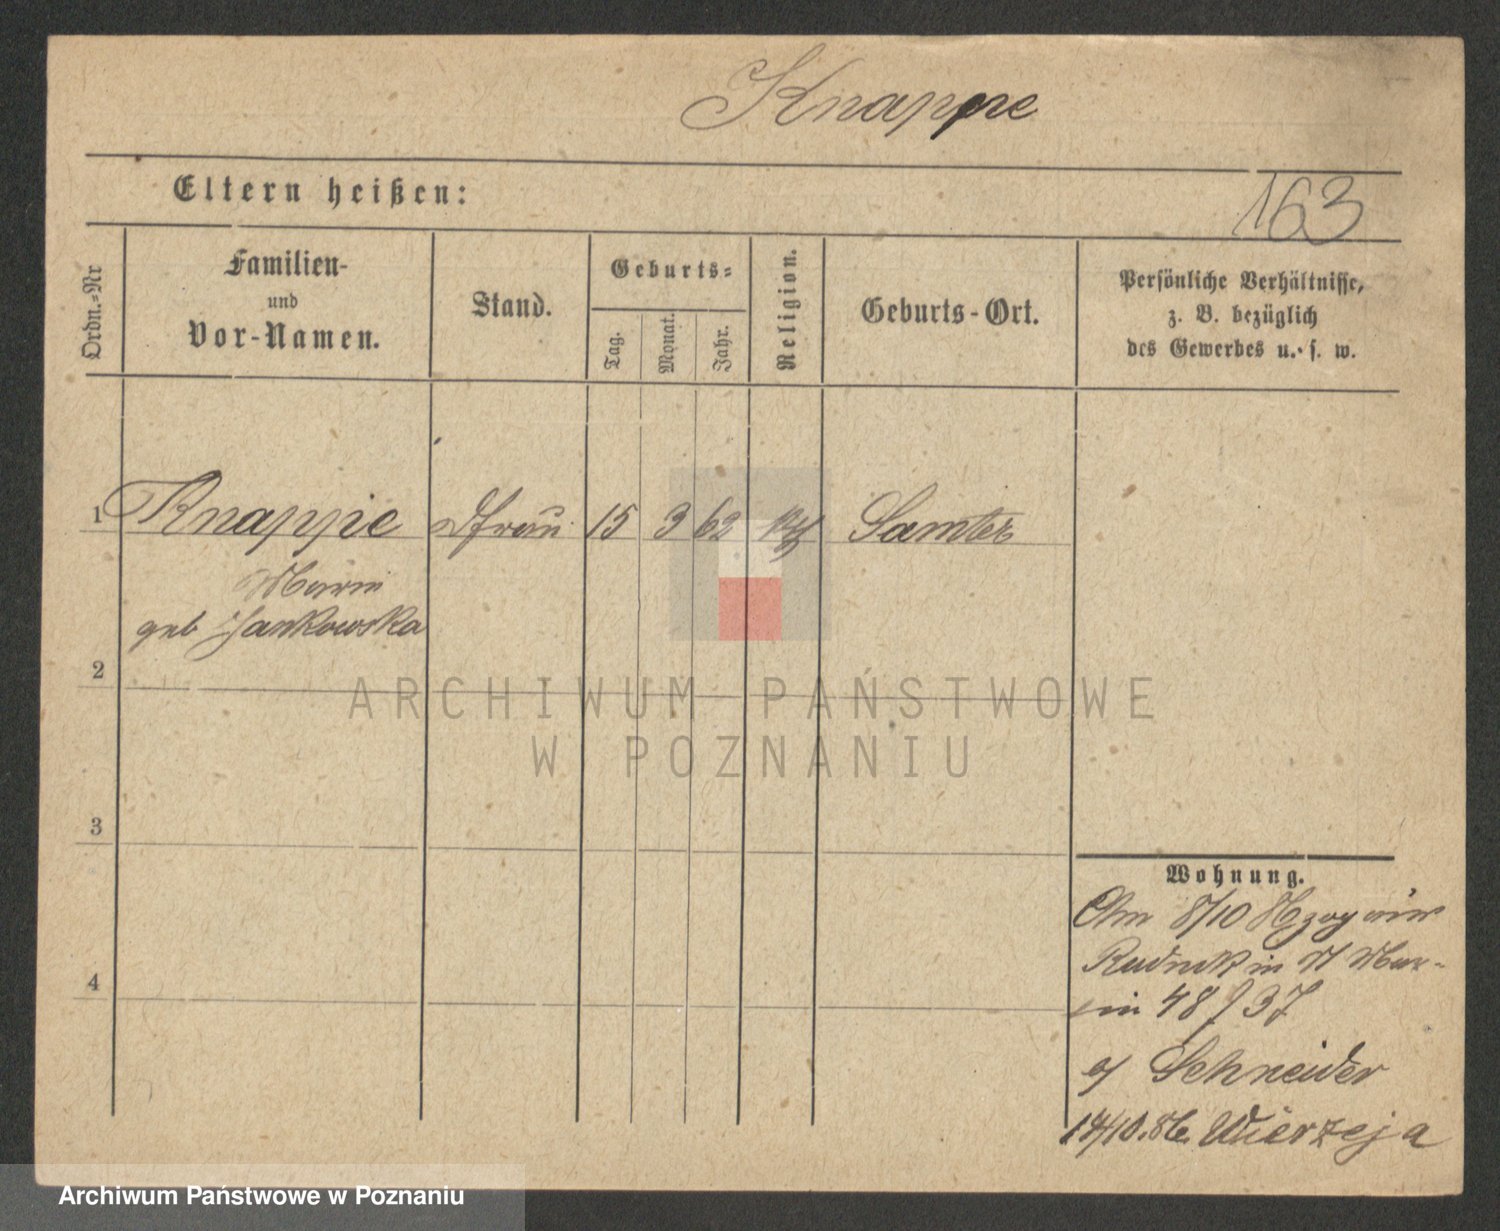 Knappe
Eltern heißen:
163
Ordn.=Nr
Familien-
und
Vor-Namen.
Stand.
Geburts=
Tag.
Monat.
Jahr.
Religion.
Geburts-Ort.
Persönliche Verhältnisse,
z. B. bezüglich
des Gewerbes u. s. w.
1 Knappe 15 3 62 Samter
Marie
geb Jankowska
2
3
4
ARCHIWUM PAŃSTWOWE
W POZNANIU
Wohnung.
Am 8/10
in
48 37
Schneider
Wierzeja
Archiwum Państwowe w Poznaniu